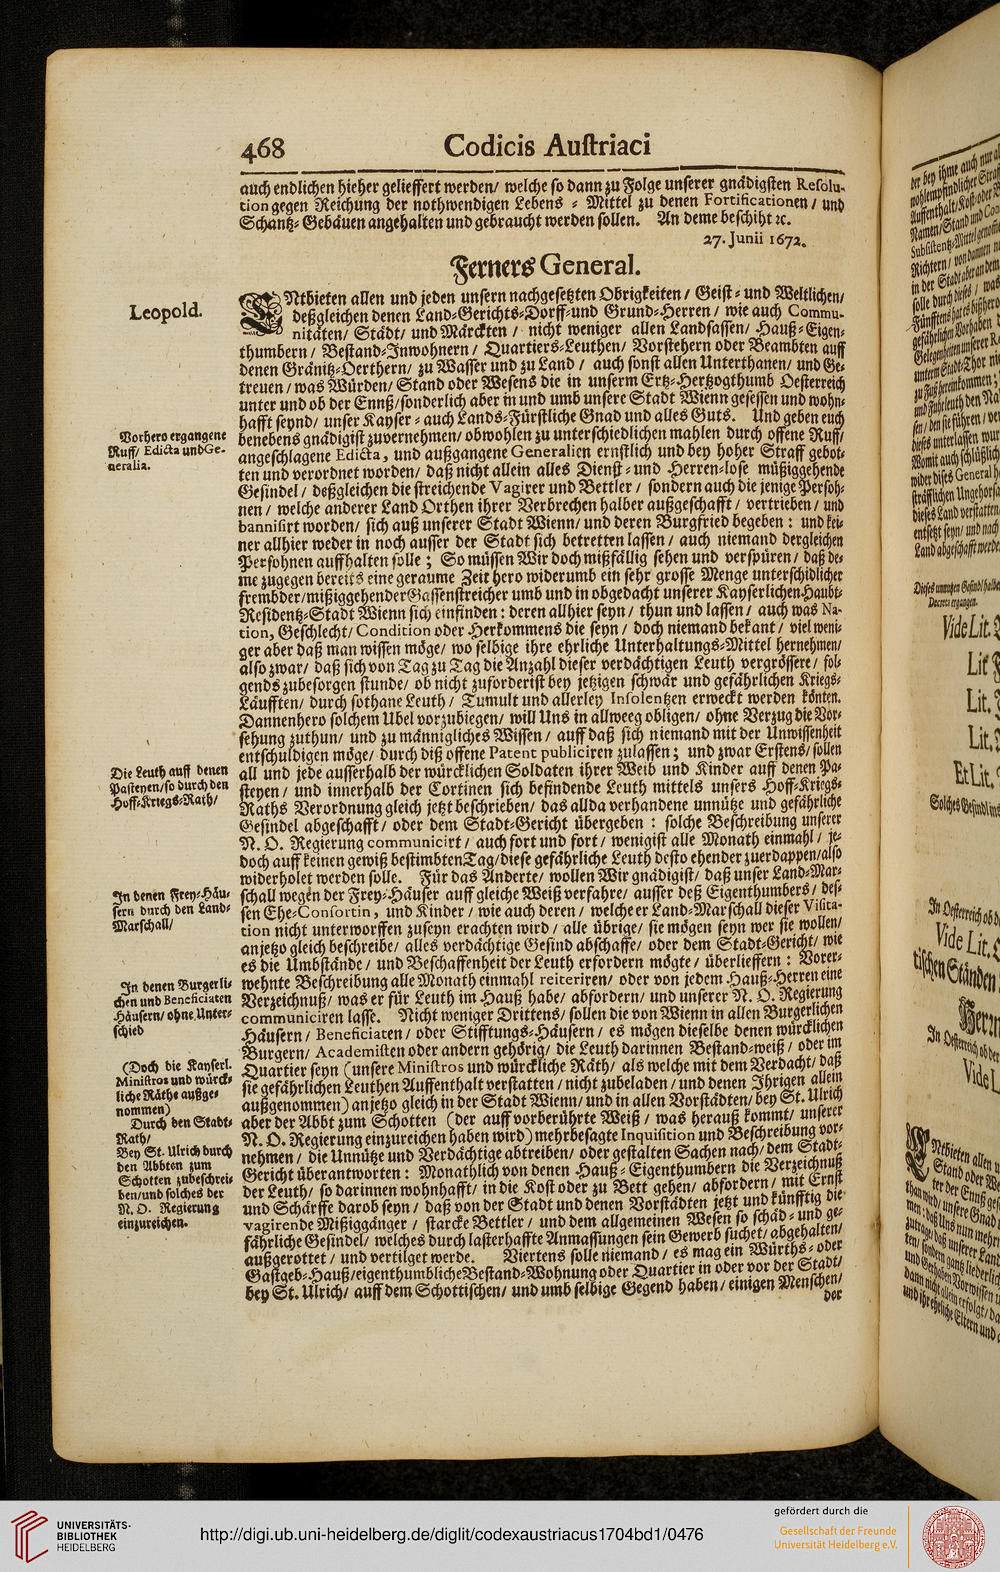 468 Codicis Austriaci
auch endlichen hieher gelieffert werden/ welche so dann zu Folge unserer gnädigsten Resolu-
tion gegen Reichung der nothwendigen Lebens - Mittel zu denen Fortificationen / und
Schantz-Gebäuen angehalten und gebraucht werden sollen. An deme beschiht ꝛc.
27. Junii 1672.
Ferners General.
Leopold.
ENtbieten allen und jeden unsern nachgesetzten Obrigkeiten / Geist- und Weltlichen/
deßgleichen denen Land-Gerichts-Dorff-und Grund-Herren / wie auch Commu-
nitäten/ Städt/ und Märckten / nicht weniger allen Landsassen/ Hauß-Eigen-
thumbern / Bestand-Inwohnern / Quartiers-Leuthen/ Vorstehern oder Beambten auff
denen Gränitz-Oerthern/ zu Wasser und zu Land / auch sonst allen Unterthanen/ und Ge-
treuen / was Würden/ Stand oder Wesens die in unserm Ertz-Hertzogthumb Oesterreich
unter und ob der Ennß/sonderlich aber in und umb unsere Stadt Wienn gesessen und wohn-
hafft seynd/ unser Kayser- auch Lands-Fürstliche Gnad und alles Guts. Und geben euch
Vorhero ergangene
Ruff/ Edicta und Ge-
neralia.
benebens gnädigist zuvernehmen/ obwohlen zu unterschiedlichen mahlen durch offene Ruff/
angeschlagene Edicta, und außgangene Generalien ernstlich und bey hoher Straff gebot-
ten und verordnet worden/ daß nicht allein alles Dienst- und Herren-lose müßiggehende
Gesindel / deßgleichen die streichende Vagirer und Bettler / sondern auch die jenige Persoh-
nen / welche anderer Land Orthen ihrer Verbrechen halber außgeschafft / vertrieben / und
bannisirt worden/ sich auß unserer Stadt Wienn/ und deren Burgfried begeben : und kei-
ner allhier weder in noch ausser der Stadt sich betretten lassen / auch niemand dergleichen
Persohnen auffhalten solle ; So müssen Wir doch mißfällig sehen und verspüren / daß de-
me zugegen bereits eine geraume Zeit hero widerumb ein sehr grosse Menge unterschidlicher
frembder/müßiggehender Gassenstreicher umb und in obgedacht unserer Kayserlichen Haubt-
Residentz-Stadt Wienn sich einfinden : deren allhier seyn / thun und lassen / auch was Na-
tion, Geschlecht/ Condition oder Herkommens die seyn / doch niemand bekant / viel weni-
ger aber daß man wissen möge/ wo selbige ihre ehrliche Unterhaltungs-Mittel hernehmen/
also zwar/ daß sich von Tag zu Tag die Anzahl dieser verdächtigen Leuth vergrössere / fol-
gends zubesorgen stunde/ ob nicht zuforderist bey jetzigen schwär und gefährlichen Kriegs-
Läufften/ durch sothane Leuth / Tumult und allerley Insolentzen erweckt werden könten.
Dannenhero solchem Ubel vorzubiegen/ will Uns in allweeg obligen/ ohne Verzug die Vor-
sehung zuthun/ und zu männigliches Wissen / auff daß sich niemand mit der Unwissenheit
entschuldigen möge/ durch diß offene Patent publiciren zulassen ; und zwar Erstens/ sollen
Die Leuth auff denen
Pasteyen/so durch den
Hoff-Kriegs-Rath/
all und jede ausserhalb der würcklichen Soldaten ihrer Weib und Kinder auff denen Pa-
steyen / und innerhalb der Cortinen sich befindende Leuth mittels unsers Hoff-Kriegs-
Raths Verordnung gleich jetzt beschrieben/ das allda verhandene unnütze und gefährliche
Gesindel abgeschafft / oder dem Stadt-Gericht übergeben : solche Beschreibung unserer
N. O. Regierung communicirt / auch fort und fort / wenigist alle Monath einmahl / je-
doch auff keinen gewiß bestimbten Tag/diese gefährliche Leuth desto ehender zuerdappen/also
widerholet werden solle. Für das Anderte/ wollen Wir gnädigist/ daß unser Land-Mar-
In denen Frey-Häu-
sern durch den Land-
Marschall/
schall wegen der Frey-Häuser auff gleiche Weiß verfahre/ ausser deß Eigenthumbers / des-
sen Ehe-Consortin, und Kinder / wie auch deren / welche er Land-Marschall dieser Visita-
tion nicht unterworffen zuseyn erachten wird / alle übrige/ sie mögen seyn wer sie wollen/
anjetzo gleich beschreibe/ alles verdächtige Gesind abschaffe/ oder dem Stadt-Gericht/ wie
es die Umbstände / und Beschaffenheit der Leuth erfordern mögte / überlieffern : Vorer-
In denen Burgerli-
chen und Beneficiaten
Häusern/ ohne Unter-
schied
wehnte Beschreibung alle Monath einmahl reiteriren/ oder von jedem Hauß-Herren eine
Verzeichnuß/ was er für Leuth im Hauß habe/ abfordern/ und unserer N. O. Regierung
communiciren lasse. Nicht weniger Drittens/ sollen die von Wienn in allen Burgerlichen
Häusern / Beneficiaten / oder Stifftungs-Häusern / es mögen dieselbe denen würcklichen
Burgern/ Academisten oder andern gehörig/ die Leuth darinnen Bestand-weiß / oder im
(Doch die Kayserl.
Ministros und würck-
liche Räthe außge-
nommen)
Quartier seyn (unsere Ministros und würckliche Räth/ als welche mit dem Verdacht/ daß
sie gefährlichen Leuthen Auffenthalt verstatten / nicht zubeladen / und denen Ihrigen allein
außgenommen) anjetzo gleich in der Stadt Wienn/ und in allen Vorstädten/ bey St. Ulrich
Durch den Stadt-
Rath/
Bey St. Ulrich durch
den Abbten zum
Schotten zubeschrei-
ben/und solches der
N. O. Regierung
einzureichen.
aber der Abbt zum Schotten (der auff vorberührte Weiß / was herauß kommt/ unserer
N. O. Regierung einzureichen haben wird) mehrbesagte Inquisition und Beschreibung vor-
nehmen / die Unnütze und Verdächtige abtreiben/ oder gestalten Sachen nach/ dem Stadt-
Gericht überantworten : Monathlich von denen Hauß-Eigenthumbern die Verzeichnuß
der Leuth/ so darinnen wohnhafft/ in die Kost oder zu Bett gehen/ abfordern/ mit Ernst
und Schärffe darob seyn / daß von der Stadt und denen Vorstädten jetzt und künfftig die
vagirende Müßiggänger / starcke Bettler / und dem allgemeinen Wesen so schäd- und ge-
fährliche Gesindel/ welches durch lasterhaffte Anmassungen sein Gewerb suchet/ abgehalten/
außgerottet / und vertilget werde. Viertens solle niemand / es mag ein Würths- oder
Gastgeb-Hauß/eigenthumbliche Bestand-Wohnung oder Quartier in oder vor der Stadt/
bey St. Ulrich/ auff dem Schottischen/ und umb selbige Gegend haben / einigen Menschen/
der
UNIVERSITÄTS-
BIBLIOTHEK
HEIDELBERG
http://digi.ub.uni-heidelberg.de/diglit/codexaustriacus1704bd1/0476
gefördert durch die
Gesellschaft der Freunde
Universität Heidelberg e.V.